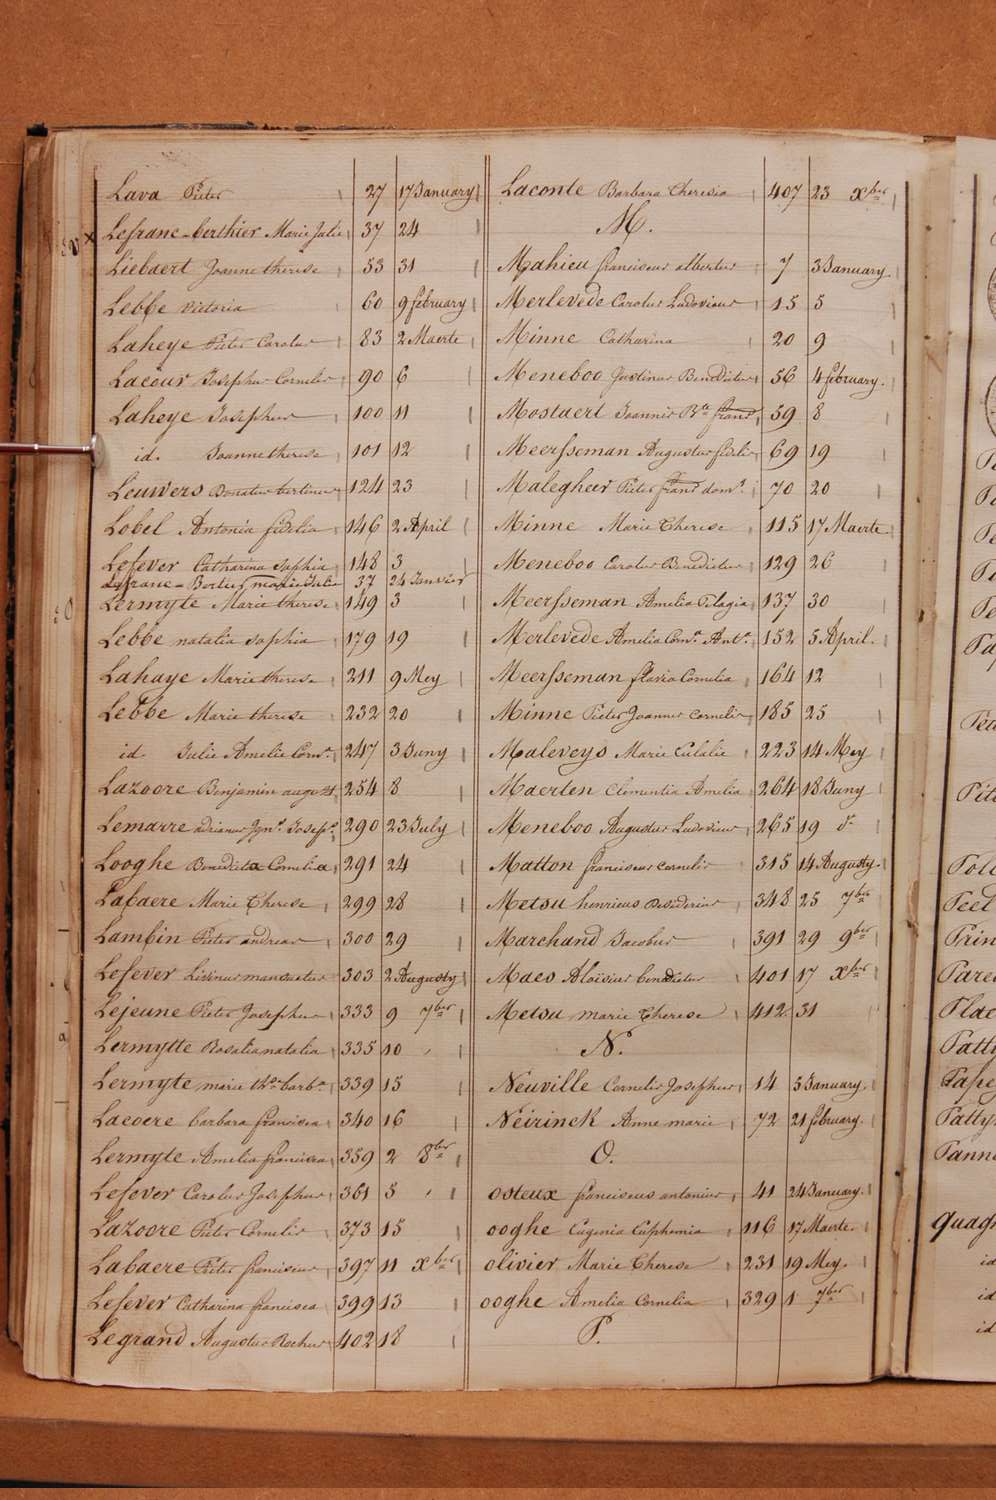 Lava Pieter 27 17 January
Lefranc-berthier Marie Julie 37 24
Liebaert Joanne therese 53 31
Lebbe victoria 60 9 february
Laheye Pieter Carolus 83 2 Maerte
Lacour Josephus Cornelis 90 6
Laheye Josephus 100 11
id. Joanne therese 101 12
Leuwers Donatus bertinus 124 23
Lobel Antonia fidelia 146 2 April
Lefever Catharina Sophia 148 3
Lefranc - Bertier marie Julie 37 24 Janvier
Lermyte Marie therese 149 3
Lebbe natalia sophia 179 19
Lahaye Marie therese 211 9 Mey
Lebbe Marie therese 232 20
id Julie Amelie Corn. 247 3 Juny
Lazoore Benjamin august 254 8
Lemarre adrianus Ign. Joseph 290 23 July
Looghe Benedicta Cornelia 291 24
Labaere Marie Therese 299 28
Lambin Pieter andreas 300 29
Lefever Livinus mansuetus 303 2 Augusty
Lejeune Pieter Josephus 333 9 7ber
Lermytte Rosalia natalia 335 10 ,
Lermyte marie the barba 339 15
Lacoere barbara francisca 340 16
Lermyte Amelia francisca 359 2 8ber
Lefever Carolus Josephus 361 5 ,
Lazoore Pieter Cornelis 373 15
Labaere Pieter franciscus 397 11 Xber
Lefever Catharina francisca 399 13
Legrand Augustus Rochus 402 18
Laconte Barbara Theresia 407 23 Xber
M.
Mahieu franciscus albertus 7 3 January.
Merlevede Carolus Ludovicus 15 5
Minne Catharina 20 9
Meneboo Justinus Benedictus 56 4 february.
Mostaert Joannes Bte frans 59 8
Meersseman Augustus fidelis 69 19
Malegheer Pieter frans dom. 70 20
Minne Marie Therese 115 17 Maerte
Meneboo Carolus Benedictus 129 26
Meersseman Amelia Pilagia 137 30
Merlevede Amelia Corn. Ant. 152 5 April.
Meersseman flavia Cornelia 164 12
Minne Pieter Joannes Cornelis 185 25
Maleveys Marie Eulalie 223 14 Mey
Maerten Clementia Amelia 264 18 Juny
Meneboo Augustus Ludovicus 265 19 do
Matton franciscus cornelis 315 14 Augusty.
Metsu henricus Desiderius 348 25 7ber
Marchand Jacobus 391 29 9ber
Maes Aloïsius benedictus 401 17 Xber
Metsu marie Therese 412 31
N.
Neuville Cornelis Josephus 14 5 January.
Neirinck Anne marie 72 21 february.
O.
osteux franciscus antonius 41 24 January.
ooghe Eugenia Euphemia 116 17 Maerte.
olivier Marie Therese 231 19 Mey.
ooghe Amelia Cornelia 329 1 7ber
P.